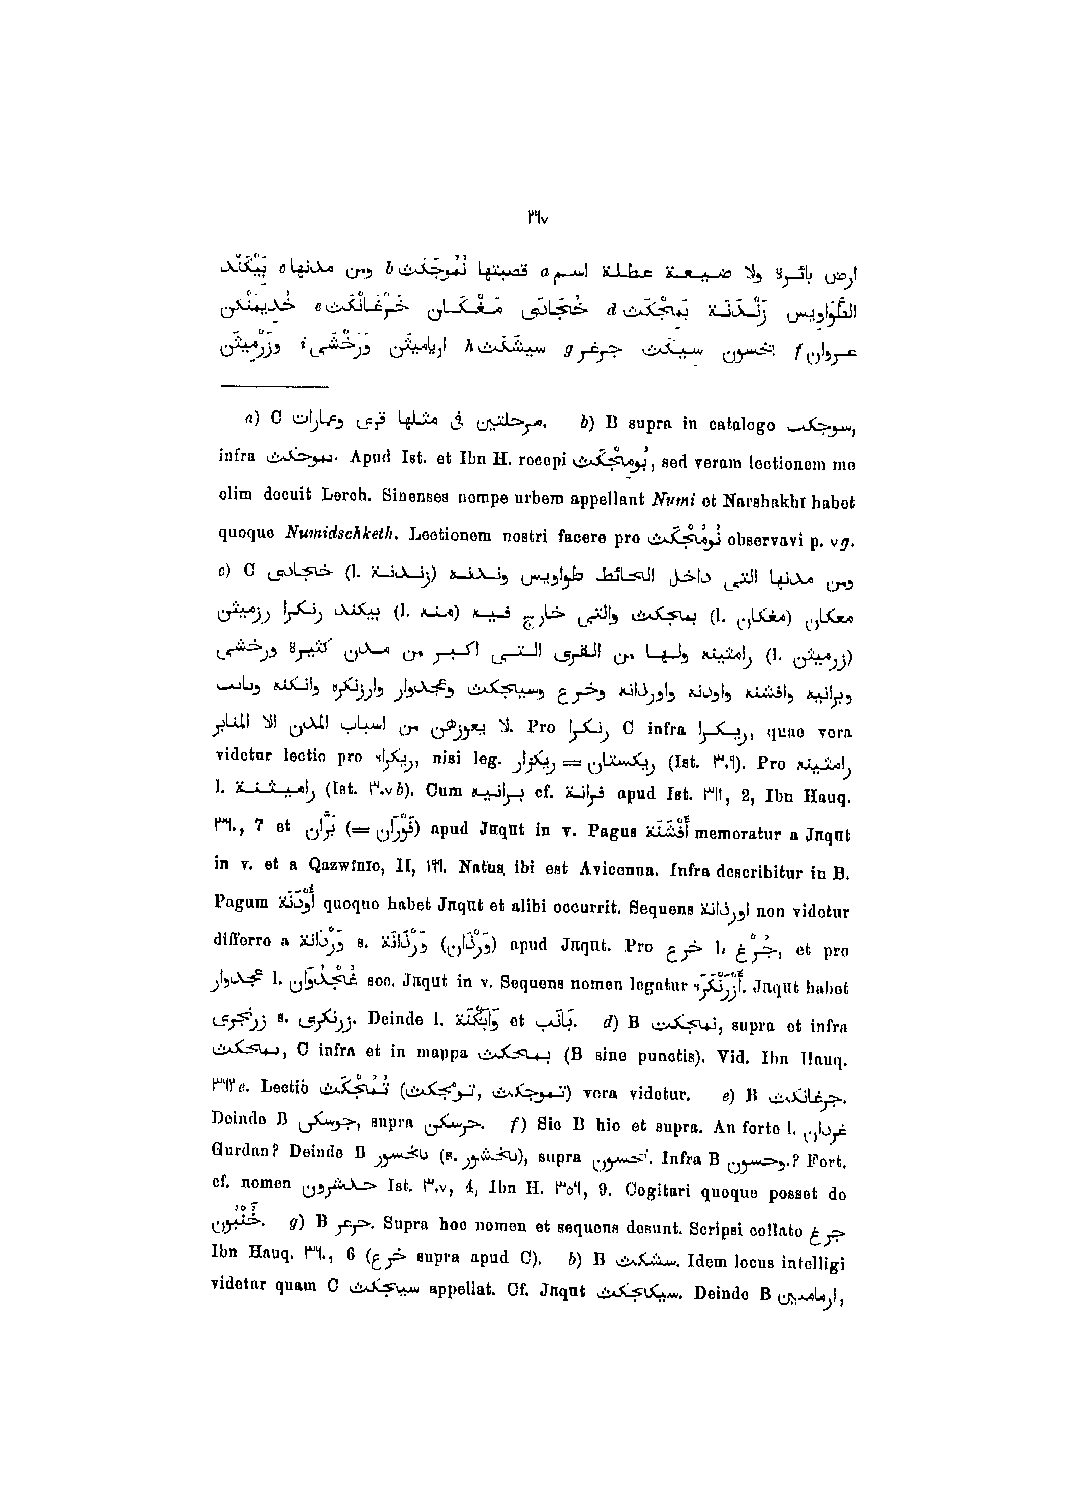 ٢٦٧
ارض بائرة ولا ضيعة عطلة اسم a قصبتها نُمُوجَكَث b ومن مدنها c بَيْكَنْد
الطَّوَاويس زَنْدَنَة بَمِجْكَث d خُجَادَى مَغْكَان خَرْغَانْكَث e خُدِيمَنْكَن
عروان f سيكث جرغر g سيشكث h اريامِيثَن وَرَخْشَى i وزَرْمِيثَن
a) C مرحلتين فى مثلها قرى وعمارات. b) B supra in catalogo سوجكب,
infra بموحكث. Apud Ist. et Ibn H. recepi بُومِجْكَث, sed veram lectionem me
olim docuit Lerch. Sinenses nempe urbem appellant Numi et Narshakhî habet
quoque Numidschketh. Lectionem nostri facere pro نُومُجْكَث observavi p. ٧g.
c) C ومن مدنها التى داخل الحائط طواويس وندنه (l. زندنة) خجادى
معكان (l. مغكان) بمجكث والتى خارج فيه (l. منه) بيكند زنكرا رزميثن
(l. زرميثن) رامثينه ولها من القرى التى اكبر من مدن كثيرة ورخشى
وبرانيه وافشنه واودنه واوردانه وخرع وسيجكث وغجدوار وارزنكره وانكنه وبانب
لا يعوزهن من اسباب المدن الا المنابر. Pro زنكرا C infra ريكرا, quae vera
videtur lectio pro ريكراء, nisi leg. ريكزار = ريكستان (Ist. ٣٠٩). Pro رامثينه
l. راميثنة (Ist. ٣٠٧ b). Cum برانيه cf. فرانة apud Ist. ٣١١, 2, Ibn Hauq.
٣٦٠, 7 et بَرَّان (= فَوْرَان) apud Jaqut in v. Pagus أَفْشَنَة memoratur a Jaqut
in v. et a Qazwînîo, II, ١٩٦. Natus ibi est Avicenna. Infra describitur in B.
Pagum أُوْدَنَة quoque habet Jaqut et alibi occurrit. Sequens اوردانة non videtur
differre a وَرْدَانَة s. وَرْدَانَة (وَرْدَان) apud Jaqut. Pro خرع l. جَرْغ, et pro
غجدوار l. غُجْدُوَان sec. Jaqut in v. Sequens nomen legatur أَرْزَنْكَرَه. Jaqut habet
زرنجرى s. زرنكرى. Deinde l. وَابْكَنَة et بَانَب. d) B نمجكث, supra et infra
بمجكث, C infra et in mappa بمجكث (B sine punctis). Vid. Ibn Hauq.
٣٦٢ e. Lectio تُمُشْكَث (تومجكث, تموجكث) vera videtur. e) B جرغانكث.
Deinde B جوسكى, supra حرسكن. f) Sic B hic et supra. An forte l. غردان
Gurdan? Deinde B باخسور (s. باخشور), supra تخسون. Infra B وخسون.? Fort.
cf. nomen خدشرون Ist. ٣٠٧, 4, Ibn H. ٣٥٩, 9. Cogitari quoque posset de
خُنْبُون. g) B جرعر. Supra hoc nomen et sequens desunt. Scripsi collato جرغ
Ibn Hauq. ٣٦٠, 6 (خرع supra apud C). h) B سشكث. Idem locus intelligi
videtur quam C سيجكث appellat. Cf. Jaqut سيكجكث. Deinde B ارمامىىن,